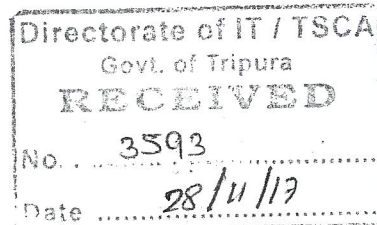 Directorate of IT / TSCA
Govt. of Tripura
RECEIVED
No. .. 3593
Date 28/11/17